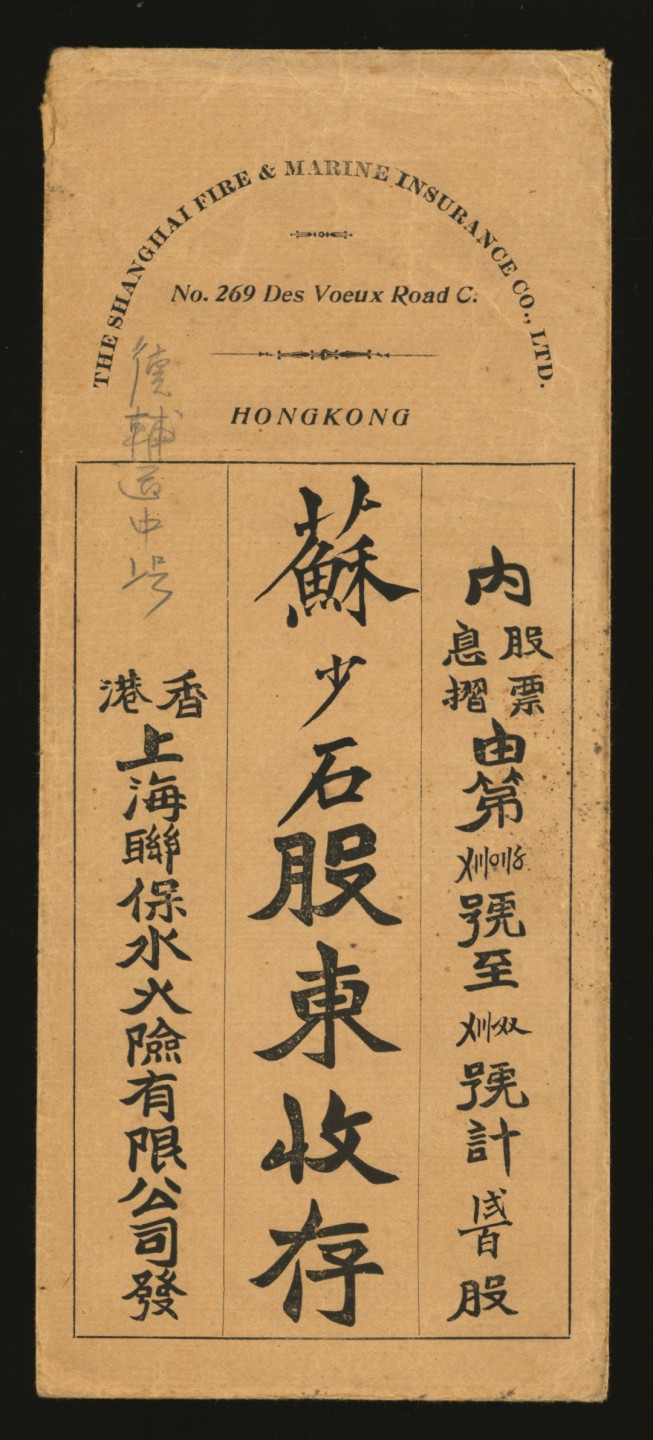 THE SHANGHAI FIRE & MARINE INSURANCE CO., LTD.
No. 269 Des Voeux Road C.
HONGKONG
內由股票息摺由第號至號計貳百股
蘇少石股東收存
香港上海聯保水火險有限公司發
德輔道中